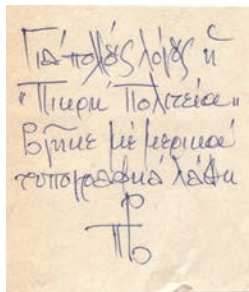 Γιά πολλούς λόγους ἡ
"Πικρή Πολιτεία"
βγῆκε μέ μερικά
τυπογραφικά λάθη